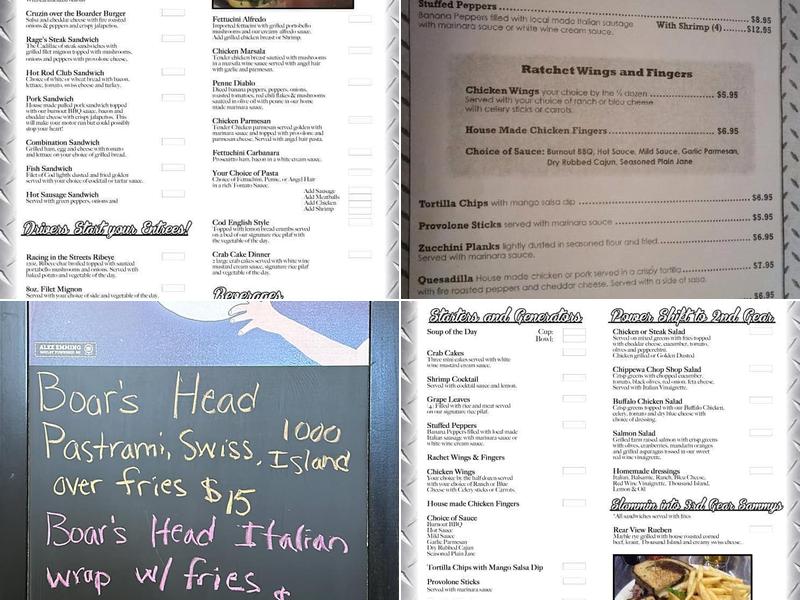 Cruzin over the Boarder Burger
Salsa and cheddar cheese fire roasted
onions & peppers and crispy jalapenos.
Rage's Steak Sandwich
The Cadillac of steak sandwiches with
grilled filet mignon topped with mushrooms,
onions and peppers with provolone cheese.
Hot Rod Club Sandwich
Choice of white or wheat bread with bacon,
lettuce, tomato, swiss cheese and turkey.
Pork Sandwich
House made pulled pork sandwich topped
with our burnout BBQ sauce, bacon and
cheddar cheese with crispy jalapenos. This
will make your motor run but could possibly
stop your heart!
Combination Sandwich
Grilled ham, egg and cheese with tomato
and lettuce on your choice of grilled bread.
Fish Sandwich
Filet of Cod lightly dusted and fried golden
served with your choice of cocktail or tartar sauce.
Hot Sausage Sandwich
Served with green peppers, onions and
Drivers Start your Entrees!
Racing in the Streets Ribeye
12oz. Ribeye char broiled topped with sauteed
portabello mushrooms and onions. Served with
baked potato and vegetable of the day.
8oz. Filet Mignon
Served with your choice of side and vegetable of the day.
Fettucini Alfredo
Imported fettucini with grilled portobello
mushrooms and our creamy alfredo sauce.
Add grilled chicken breast or Shrimp.
Chicken Marsala
Tender chicken breast sauteed with mushrooms
in a marsala wine sauce served with angel hair
with garlic and parmesan.
Penne Diablo
Diced banana peppers, peppers, onions,
roasted tomatoes, red chili flakes & mushrooms
sauteed in olive oil with penne in our home
made marinara sauce.
Chicken Parmesan
Tender Chicken parmesan served golden with
marinara sauce and topped with provolone and
parmesan cheese. Served with angel hair pasta.
Fettuccini Carbanara
Prosciutto ham, bacon in a white cream sauce.
Your Choice of Pasta
Choice of Fettuccini, Penne, or Angel Hair
in a rich Tomato Sauce.
Add Sausage
Add Meatballs
Add Chicken
Add Shrimp
Cod English Style
Topped with lemon bread crumbs served
on a bed of our signature rice pilaf with
the vegetable of the day.
Crab Cake Dinner
2 large crab cakes served with white wine
mustard cream sauce, signature rice pilaf
and vegetable of the day.
Beverages
Stuffed Peppers $8.95
Banana Peppers filled with local made Italian sausage
with marinara sauce or white wine cream sauce. With Shrimp (4) $12.95
Ratchet Wings and Fingers
Chicken Wings your choice by the ½ dozen $5.95
Served with your choice of ranch or bleu cheese
with celery sticks or carrots.
House Made Chicken Fingers $6.95
Choice of Sauce: Burnout BBQ, Hot Sauce, Mild Sauce, Garlic Parmesan,
Dry Rubbed Cajun, Seasoned Plain Jane
Tortilla Chips with mango salsa dip $6.95
Provolone Sticks served with marinara sauce $5.95
Zucchini Planks lightly dusted in seasoned flour and fried $6.95
Served with marinara sauce.
Quesadilla House made chicken or pork served in a crispy tortilla $7.95
with fire roasted peppers and cheddar cheese. Served with a side of salsa.
$6.95
ALEX EMMING
Boar's Head
Pastrami, Swiss, 1000
Island
over fries $15
Boar's Head Italian
wrap w/ fries $
Starters and Generators
Soup of the Day Cup:
Bowl:
Crab Cakes
Three mini cakes served with white
wine mustard cream sauce.
Shrimp Cocktail
Served with cocktail sauce and lemon.
Grape Leaves
(4) Filled with rice and meat served
on our signature rice pilaf.
Stuffed Peppers
Banana Peppers filled with local made
Italian sausage with marinara sauce or
white wine cream sauce.
Rachet Wings & Fingers
Chicken Wings
Your choice by the half dozen served
with your choice of Ranch or Blue
Cheese with Celery sticks or Carrots.
House made Chicken Fingers
Choice of Sauce
Burnout BBQ
Hot Sauce
Mild Sauce
Garlic Parmesan
Dry Rubbed Cajun
Seasoned Plain Jane
Tortilla Chips with Mango Salsa Dip
Provolone Sticks
Served with marinara sauce
Power Shift to 2nd Gear
Chicken or Steak Salad
Served on mixed greens with fries topped
with cheddar cheese, cucumber, tomato,
olives and pepperchini.
Chicken grilled or Golden Dusted
Chippewa Chop Shop Salad
Crisp greens with chopped cucumber,
tomato, black olives, red onion, feta cheese.
Served with Italian Vinaigrette.
Buffalo Chicken Salad
Crisp greens topped with our Buffalo Chicken,
celery, tomato and dry blue cheese with
choice of dressing.
Salmon Salad
Grilled farm raised salmon with crisp greens
with olives, cranberries, mandarin oranges
and grilled asparagus tossed in our sweet
red wine vinaigrette.
Homemade dressings
Italian, Balsamic, Ranch, Bleu Cheese,
Red Wine Vinaigrette, Thousand Island,
Lemon & Oil
Slammin into 3rd Gear Sammys
*All sandwiches served with fries
Rear View Rueben
Marble rye grilled with house roasted corned
beef, kraut, Thousand Island and creamy swiss cheese.